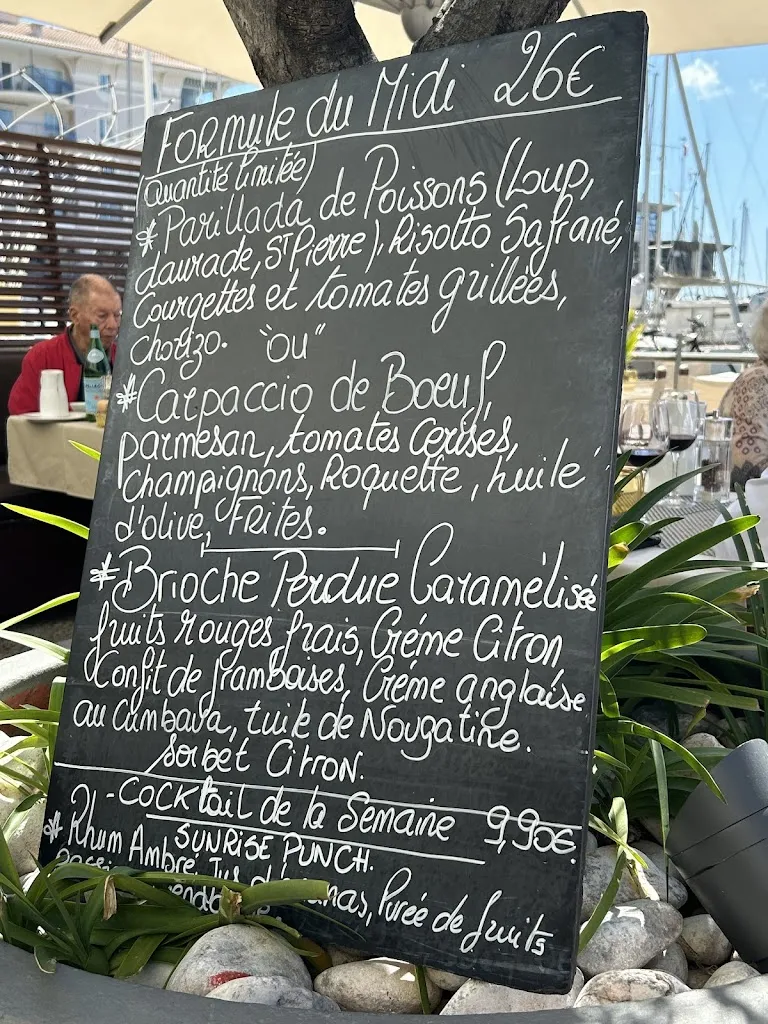 Formule du Midi 26€
(Quantité limitée)
* Parillada de Poissons (Loup,
daurade, St Pierre), Risotto Safrané,
Courgettes et tomates grillées,
chorizo. "ou"
* Carpaccio de Boeuf,
parmesan, tomates cerises,
champignons, Roquette, huile
d'olive, Frites.
* Brioche Perdue Caramélisée
fruits rouges frais, Créme Citron
Confit de framboises, Créme anglaise
au Cumbava, tuile de Nougatine.
Sorbet Citron.
- Cocktail de la Semaine 9,90€.
SUNRISE PUNCH.
* Rhum Ambré, Jus d'ananas, Purée de fruits